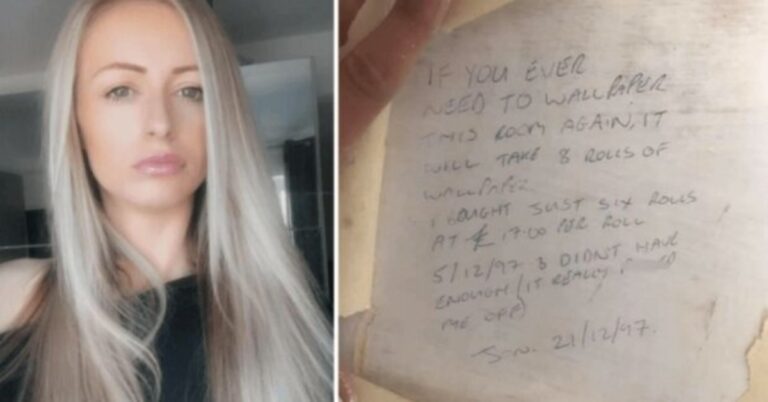 IF YOU EVER
NEED TO WALLPAPER
THIS ROOM AGAIN, IT
WILL TAKE 8 ROLLS OF
WALLPAPER
I BOUGHT JUST SIX ROLLS
AT £17.00 PER ROLL
5/12/97 & DIDNT HAVE
ENOUGH (IT REALLY
ME OFF)
JON. 21/12/97.